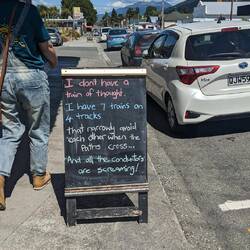 I don't have a
train of thought.
I have 7 trains on
4 tracks
that narrowly avoid
each other when the
paths cross...
And all the conductors
are screaming!